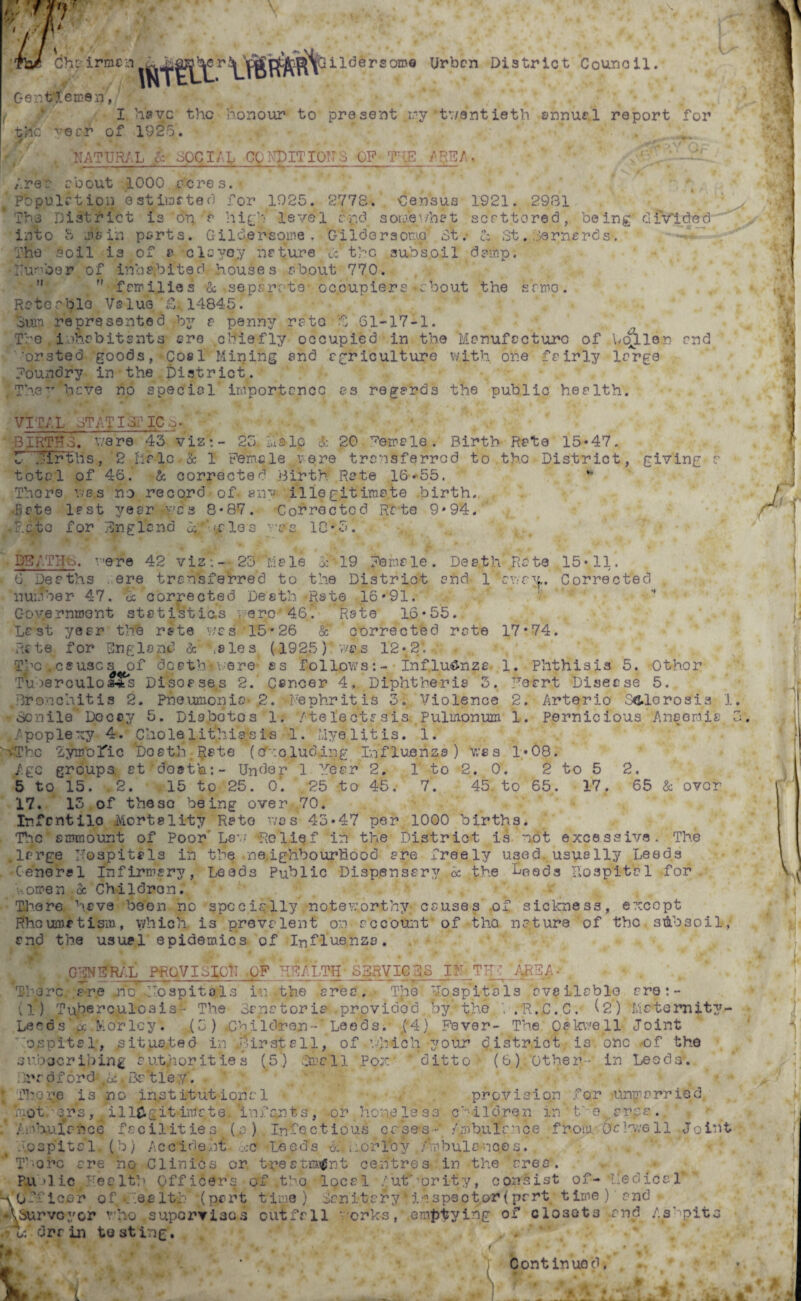 Chairman & Members Gildersome Urban District Council.
INTELL. LIBRARY
Gentlemen,
I have the honour to present my twentieth annual report for
the year of 1925.
NATURAL & SOCIAL CONDITIONS OF THE AREA.
Area about 1000 acres.
Population estimated for 1925. 2778. Census 1921. 2981
The District is on a high level and somewhat scattered, being divided
into 3 main parts. Gildersome. Gildersome St. & St.Bernards.
The soil is of a clayey nature & the subsoil damp.
Number of inhabited houses about 770.
" " families & separate occupiers about the same.
Rateable Value £. 14845.
Sum represented by a penny rate £ 61-17-1.
The inhabitants are chiefly occupied in the Manufacture of Wollen and
Worsted goods, Coal Mining and agriculture with one fairly large
Foundry in the District.
They have no special importance as regards the public health.
VITAL STATISTICS.
BIRTHS. were 43 viz:- 23 Male & 20 Female. Birth Rate 15·47.
3 Births, 2 Male & 1 Female were transferred to the District, giving a
total of 46. & corrected Birth Rate 16·55.
There was no record of any illegitimate birth.
Rate last year was 8·87. Corrected Rate 9·94.
Rate for England & Wales was 18·3.
DEATHS. were 42 viz:- 23 Male & 19 Female. Death Rate 15·11.
6 Deaths were transferred to the District and 1 away. Corrected
number 47. & corrected Death Rate 16·91.
Government statistics were 46. Rate 16·55.
Last year the rate was 15·26 & corrected rate 17·74.
Rate for England & Wales (1925) was 12·2.
The causes of death were as follows:- Influenza 1. Phthisis 5. Other
Tuberculous Diseases 2. Cancer 4. Diphtheria 3. Heart Disease 5.
Bronchitis 2. Pneumonia 2. Nephritis 3. Violence 2. Arterio Sclerosis 1.
Senile Decay 5. Diabetes 1. Atelectasis Pulmonum 1. Pernicious Anaemia 3.
Apoplexy 4. Cholelithiasis 1. Myelitis. 1.
The Zymotic Death Rate (excluding Influenza) was 1·08.
Age groups at death:- Under 1 Year 2. 1 to 2. 0. 2 to 5 2.
5 to 15. 2. 15 to 25. 0. 25 to 45. 7. 45 to 65. 17. 65 & over
17. 13 of these being over 70.
Infantile Mortality Rate was 43·47 per 1000 births.
The ammount of Poor Law Relief in the District is not excessive. The
large Hospitals in the neighbourhood are freely used usually Leeds
General Infirmary, Leeds Public Dispensary & the Leeds Hospital for
Women & Children.
There have been no specially noteworthy causes of sickness, except
Rheumatism, which is prevalent on account of the nature of the subsoil,
and the usual epidemics of Influenza.
GENERAL PROVISION OF HEALTH SERVICES IN THE AREA.
There are no Hospitals in the area. The Hospitals available are:-
(1) Tuberculosis- The Sanatoria provided by the W.R.C.C. (2) Maternity-
Leeds & Morley. (3) Children- Leeds. (4) Fever- The Oakwell Joint
Hospital, situated in Birstall, of which your district is one of the
subscribing authorities (5) Small Pox ditto (6) Other- in Leeds.
Bradford & Batley.
There is no institutional provision for unmarried
mothers, illegitimate infants, or homeless children in the area.
Ambulance facilities (a) Infectious cases- Ambulance from Oakwell Joint
Hospital (b) Accident &c Leeds & Morley Ambulances.
There are no Clinics or treatment centres in the area.
Public Health Officers of the local Authority, consist of- Medical
Officer of Health (part time) Sanitary inspector(part time) and
Surveyor who supervises outfall works, emptying of closets and Ashpits
& drain testing.
Continued.